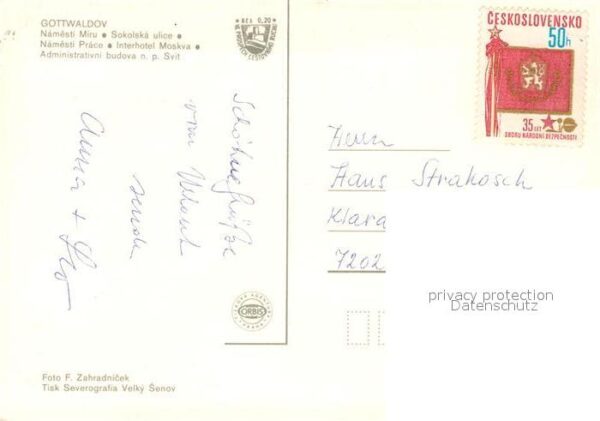 GOTTWALDOV
Náměstí Míru • Sokolská ulice •
Náměstí Práce • Interhotel Moskva •
Administrativní budova n. p. Svit
0,20
Schöhne Grüße
vom Urlaub
sende
Anna + Leo
ORBIS
Foto F. Zahradníček
Tisk Severografia Velký Šenov
ČESKOSLOVENSKO
50h
35 LET
SBORU NÁRODNÍ BEZPEČNOSTI
Herrn
Hans Strakosch
Klara
7202
privacy protection
Datenschutz